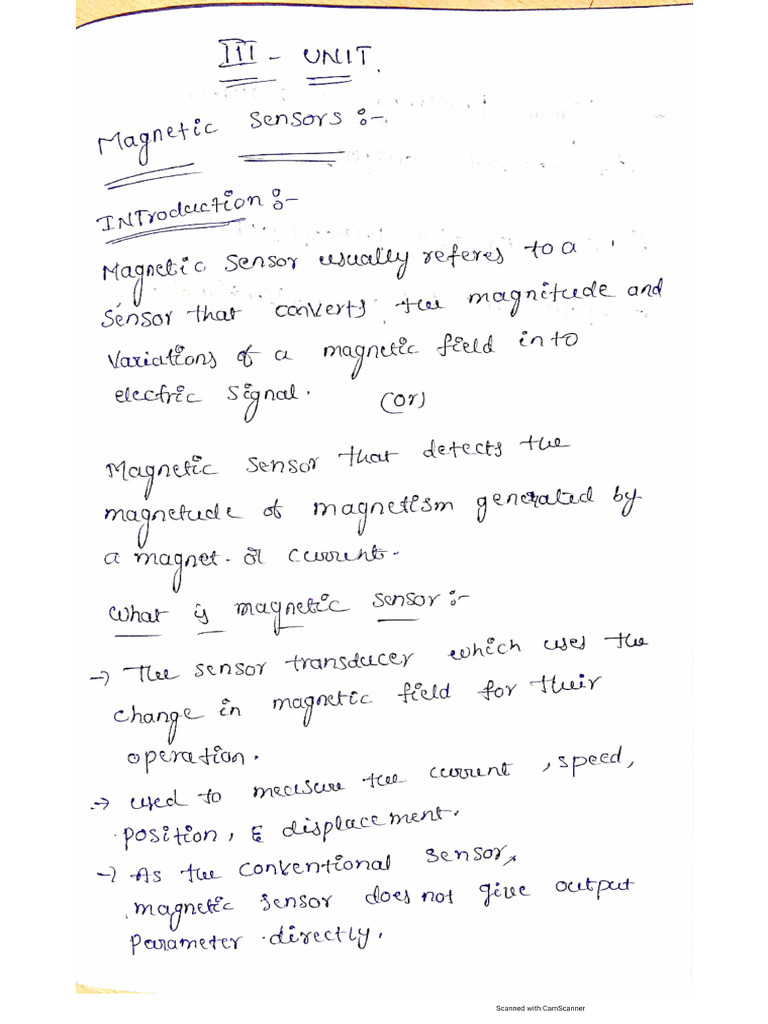 III - UNIT.
Magnetic Sensors :-
INTroduction :-
Magnetic Sensor usually referes to a
Sensor that converts the magnitude and
Variations of a magnetic field into
electric signal. (or)
Magnetic Sensor that detects the
magnetude of magnetism generated by
a magnet. or current.
What is magnetic sensor :-
→ The sensor transducer which uses the
change in magnetic field for their
operation.
→ used to measure the current, speed,
position, & displacement.
→ As the conventional sensor,
magnetic sensor does not give output
Parameter directly.
Scanned with CamScanner